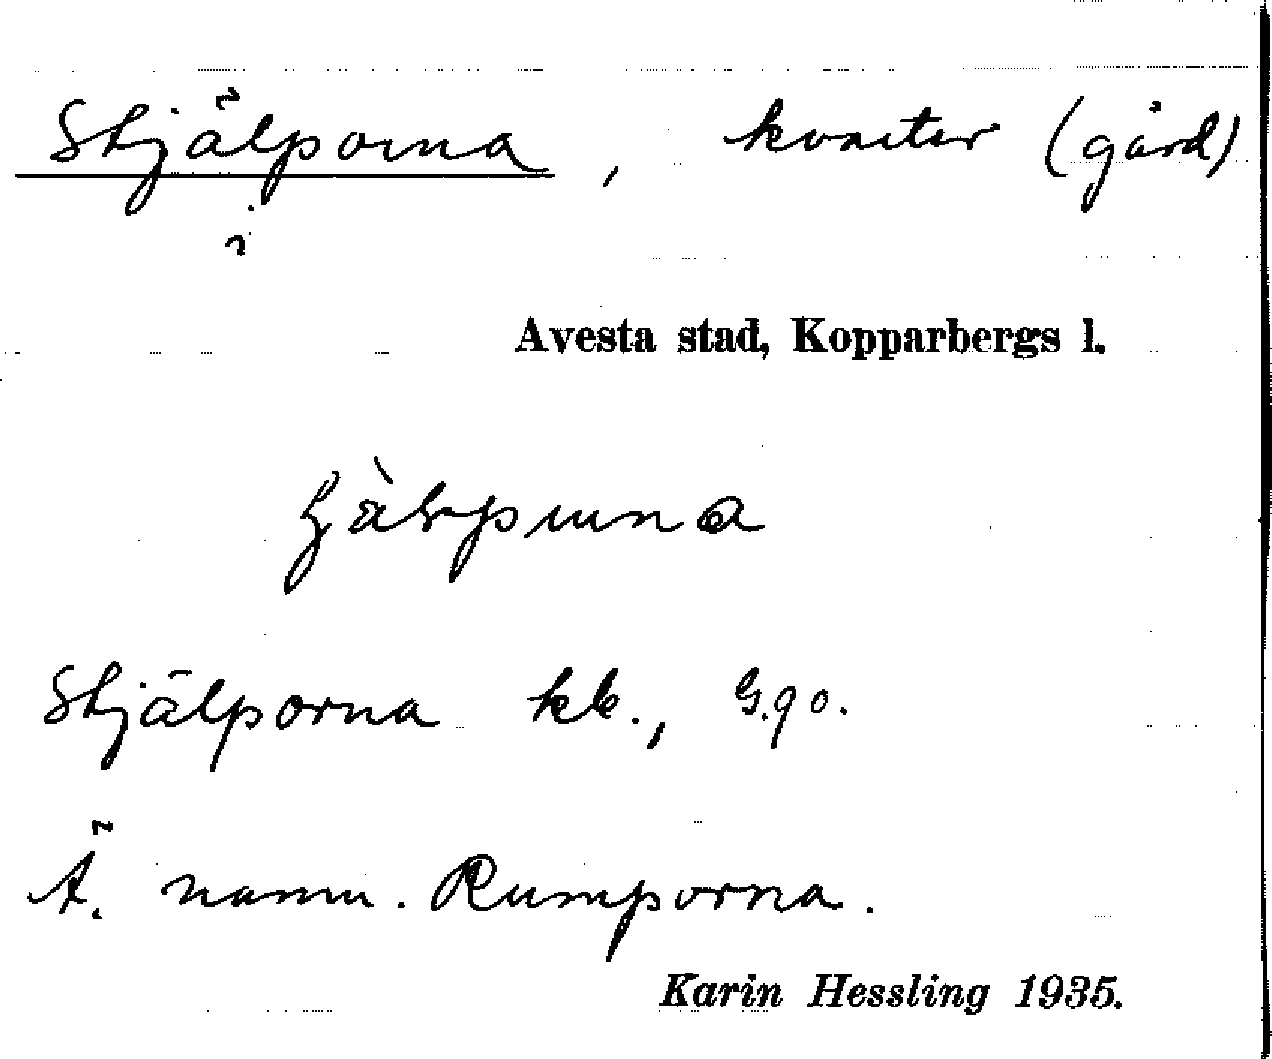 Skjälporna, kvarter (gård)
i
Avesta stad, Kopparbergs l.
Skjälporna kb., G.90.
Ä. namn. Rumporna.
Karin Hessling 1935.